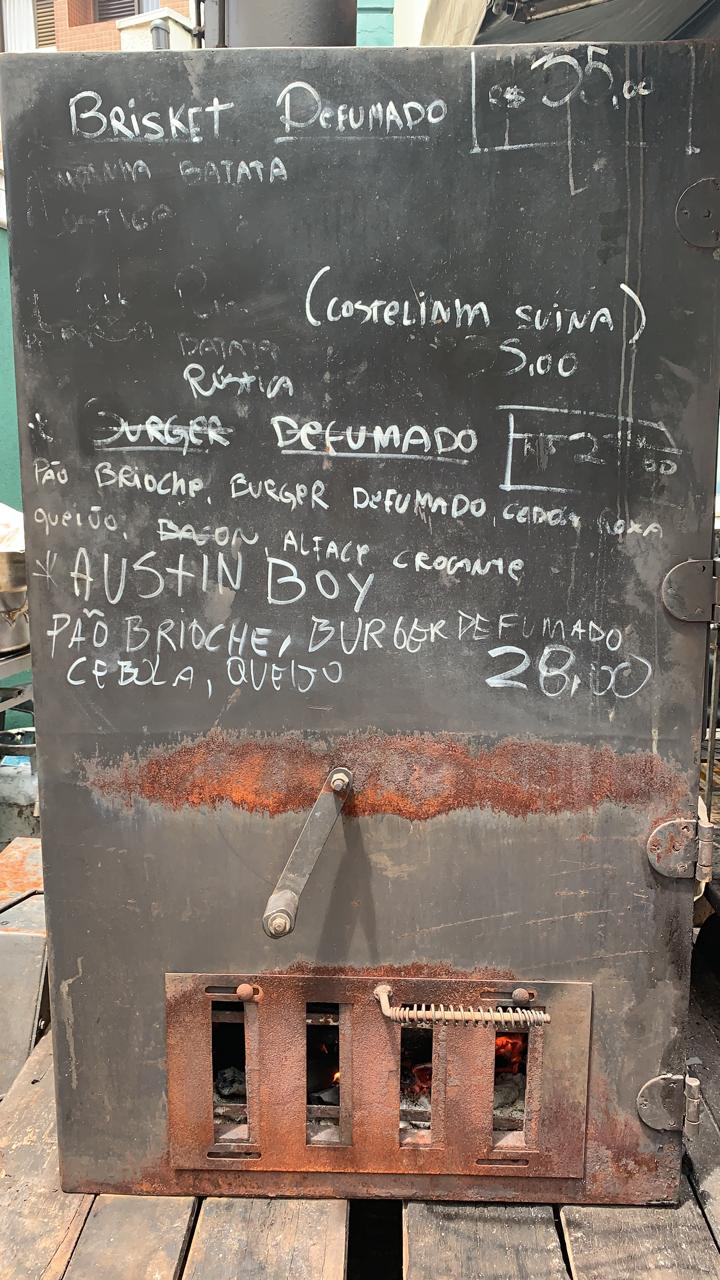 BRISKET DEFUMADO R$ 35,00
BATATA
(COSTELINHA SUINA)
BATATA 5,00
RÚSTICA
* BURGER DEFUMADO
PÃO BRIOCHE, BURGER DEFUMADO, CEBOLA ROXA
QUEIJO, BACON, ALFACE CROCANTE
* AUSTIN BOY
PÃO BRIOCHE, BURGER DEFUMADO
CEBOLA, QUEIJO 28,00